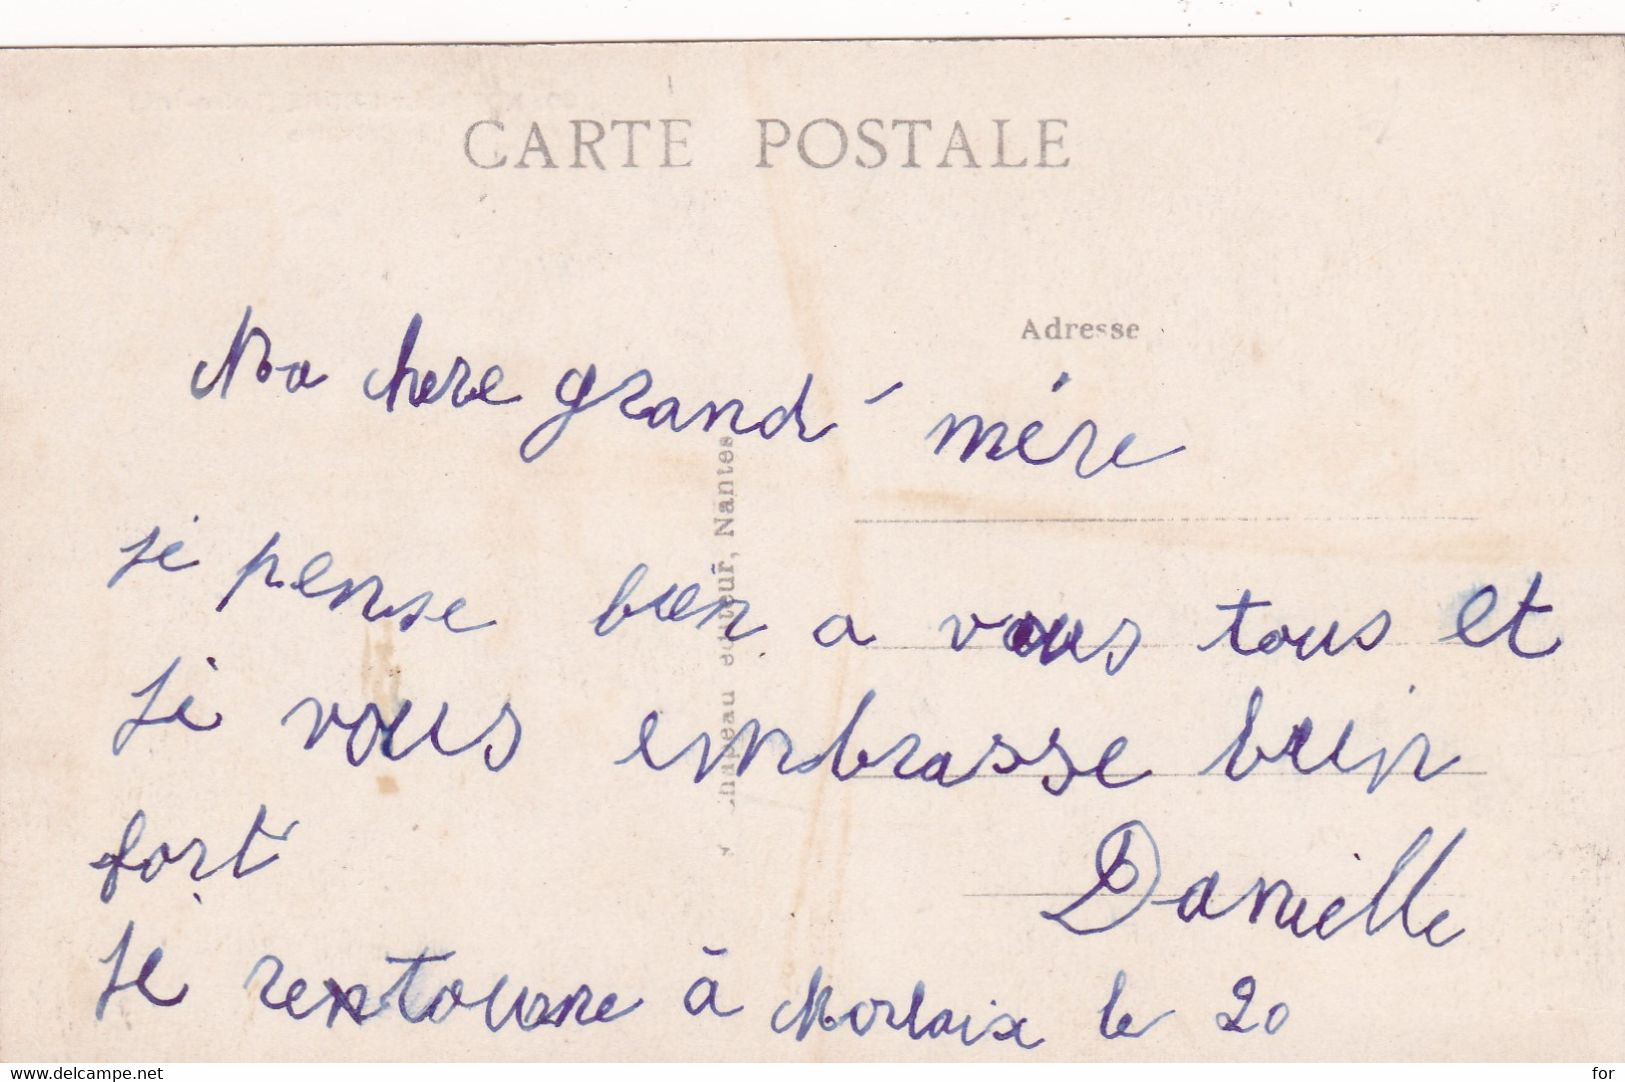 CARTE POSTALE
Adresse
Ma chere grand-mére
je pense bien a vous tous et
je vous embrasse bien
fort
Danielle
je rentourne à Morlaix le 20
Chapeau éditeur, Nantes
www.delcampe.net
for